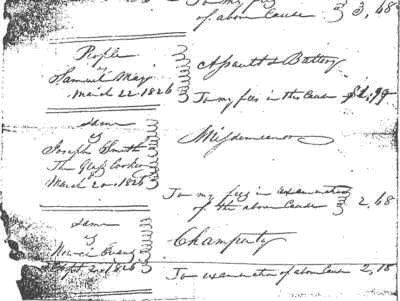 To my fees in
of above Cause 3,68
People
vs
Samuel May
March 22. 1826
Assault & Battery
To my fees in the Cause $1.99
same
vs
Joseph Smith
The Glass Looker
March 20. 1826
Misdemeanor
To my fees in examination
of the above Cause 2,68
same
vs
Sept 2. 1826
Champerty
To examination of above Cause 2,18